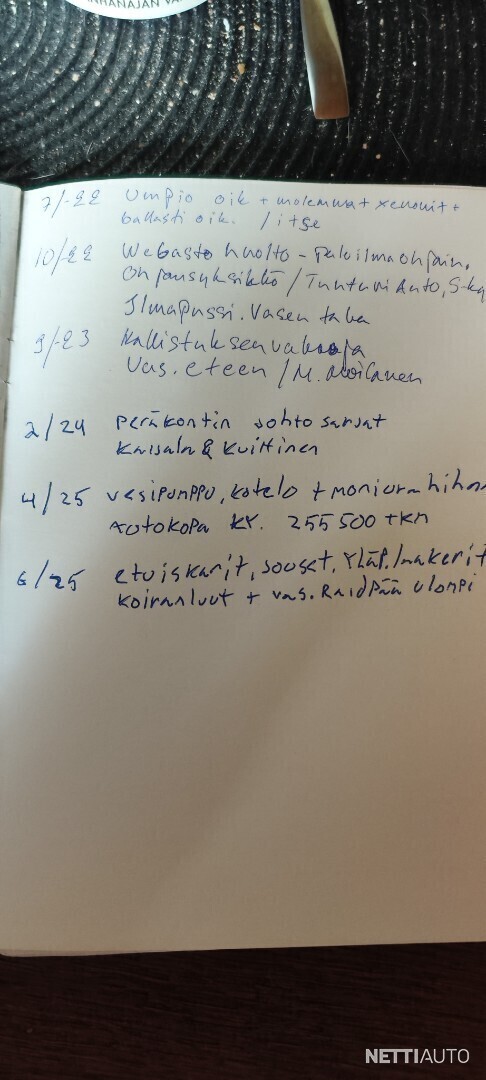 NHANAJAN VA
7/-22 Umpio oik + molemmat xenonit +
ballasti oik. / itse
10/-22 Webasto huolto - Paloilmaohjain,
Ohjausyksikkö / Tunturi Auto, S-ky
Ilmapussi. Vasen taka
9/-23 Kallistuksenvakaaja
Vas. eteen / M. Moilanen
2/24 peräkontin johto sarjat
Kaisala & Kvittinen
4/25 vesipumppu, kotelo + moniurahihna
Autokopa KY. 255500 tkm
6/25 etuiskarit, jouset, Yläp. laakerit
koiranluut + vas. Raidpää ulompi
NETTIAUTO